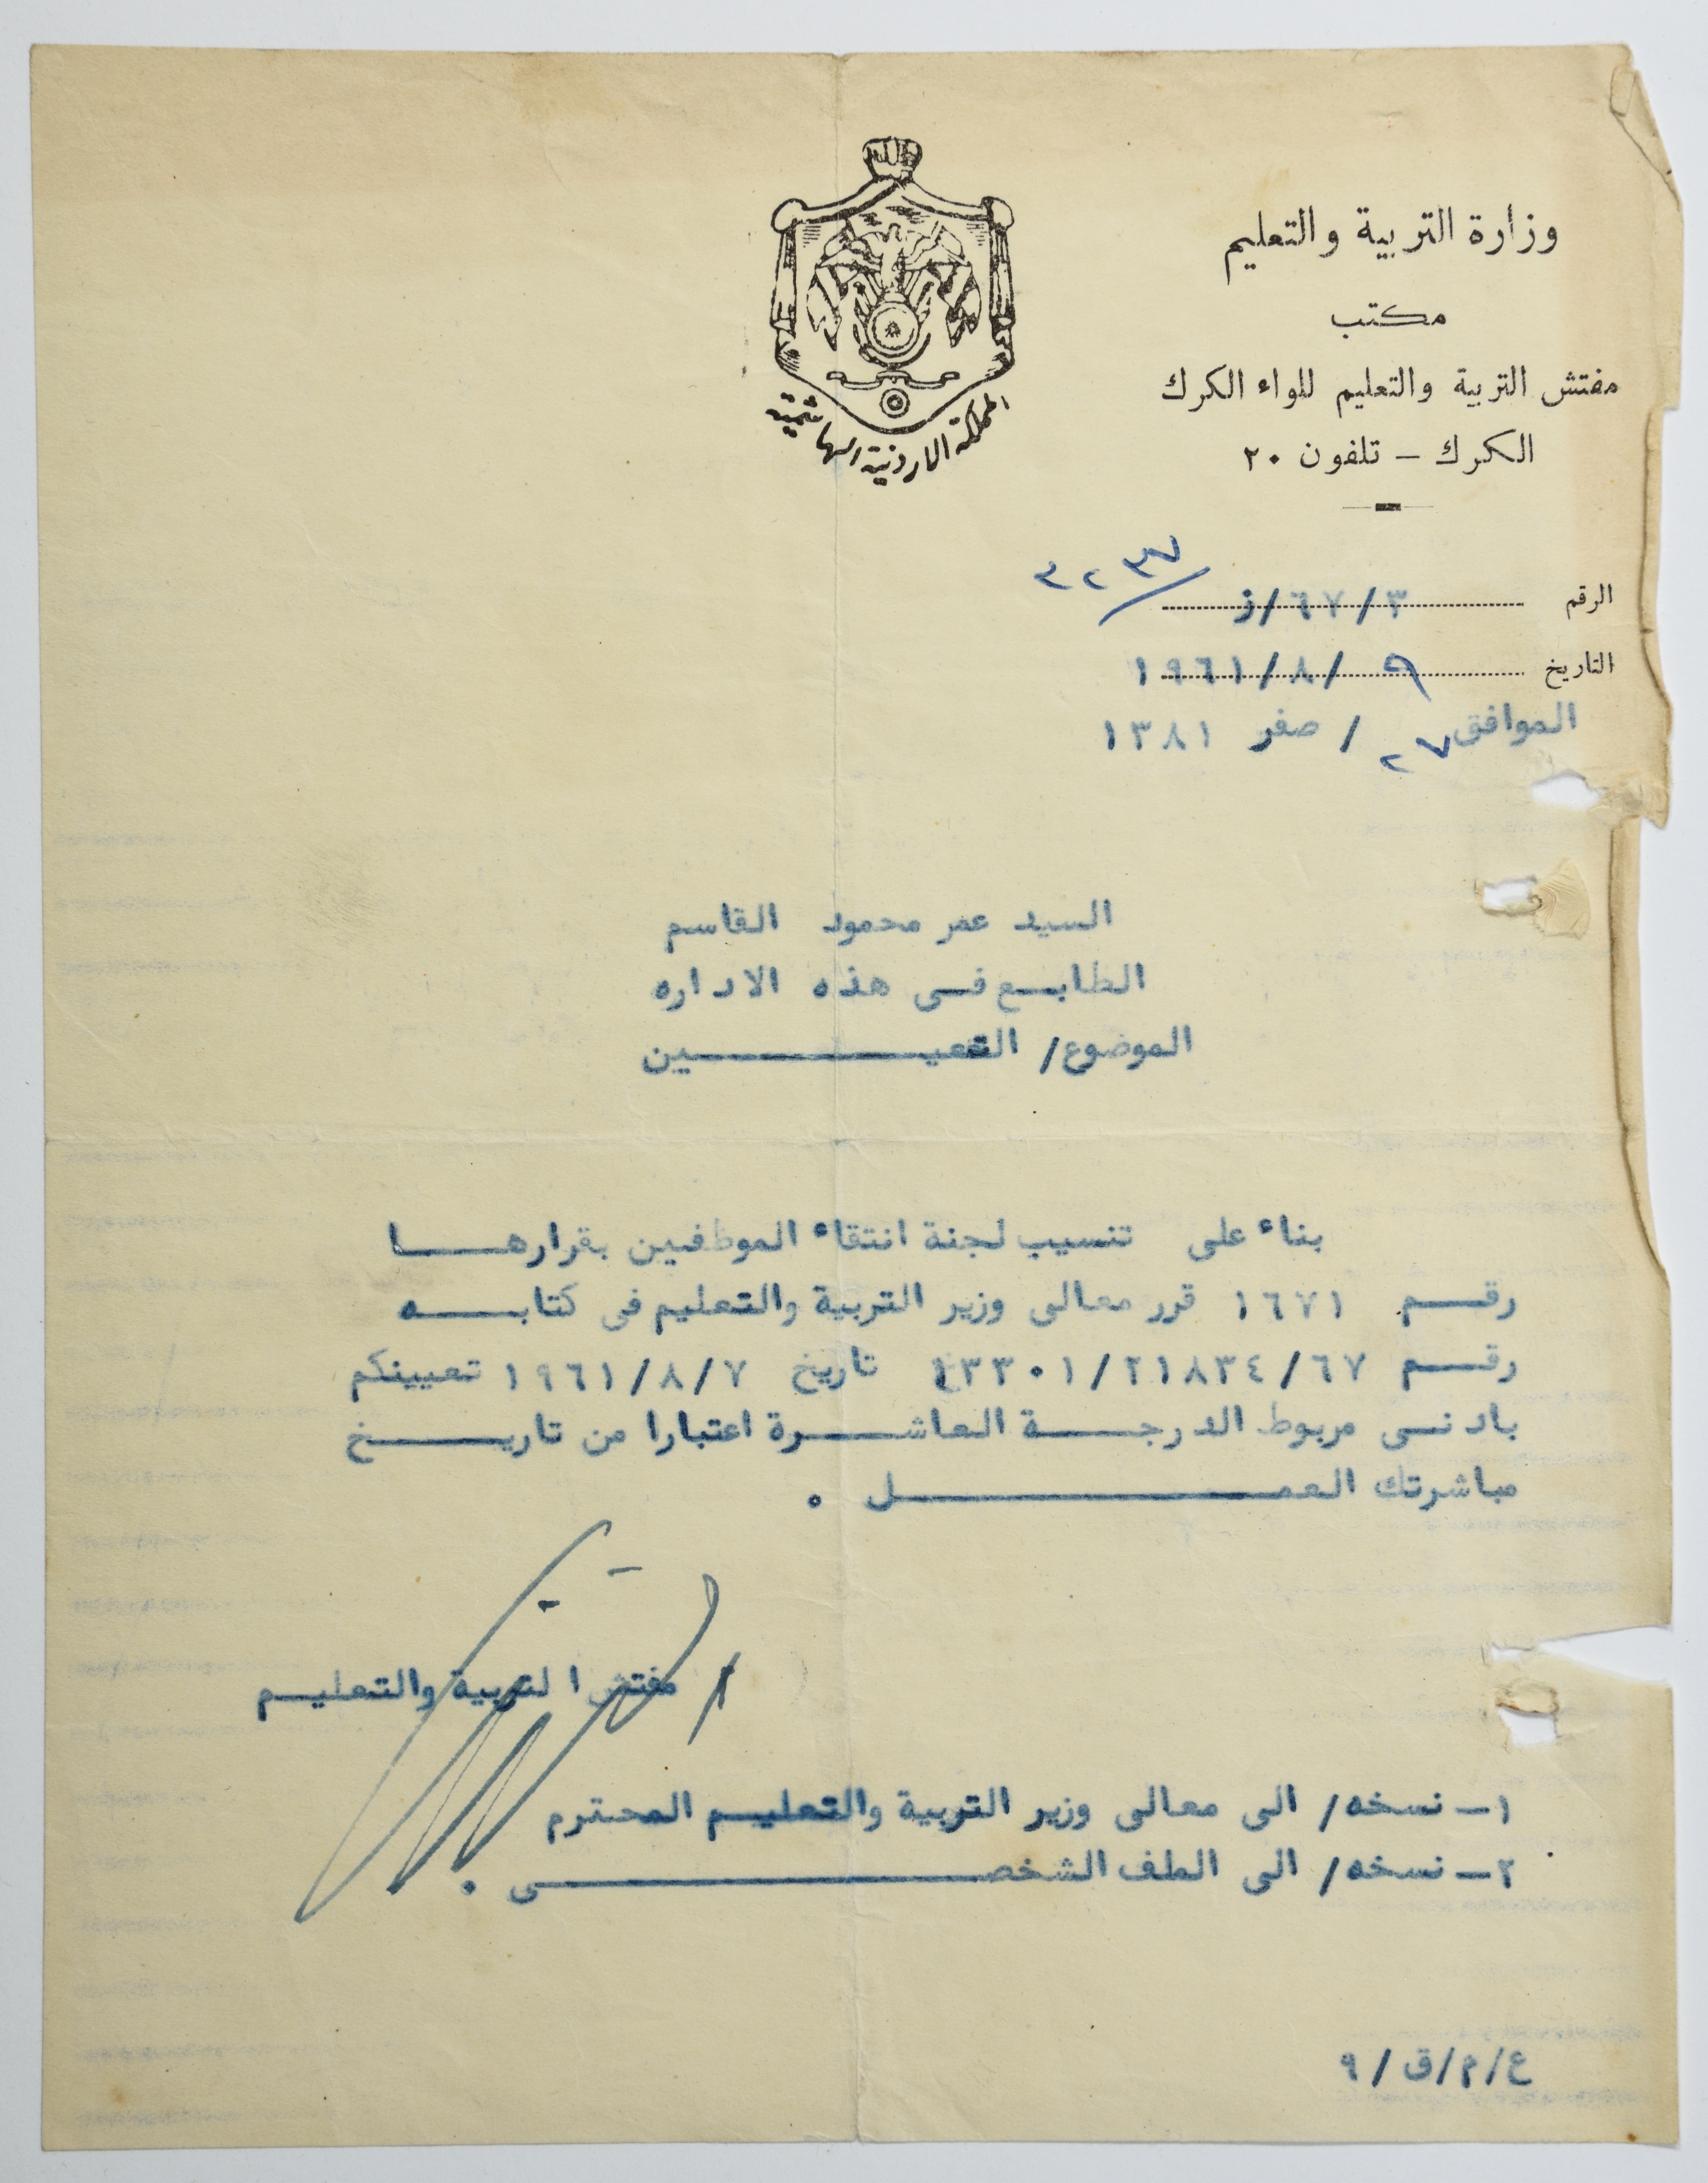 وزارة التربية والتعليم
مكتب
مفتش التربية والتعليم للواء الكرك
الكرك – تلفون ٢٠
المملكة الاردنية الهاشمية
الرقم ٣/٦٧/ز/٣٢٣٧
التاريخ ٩/٨/١٩٦١
الموافق ٢٧/ صفر ١٣٨١
السيد عمر محمود القاسم
الطابع في هذه الاداره
الموضوع/ التعيـــــــــين
بناء على تنسيب لجنة انتقاء الموظفين بقرارهــــا
رقــم ١٦٧١ قرر معالي وزير التربية والتعليم في كتابـــه
رقــم ٦٧/٢١٨٣٤/١٣٣٠١ تاريخ ٧/٨/١٩٦١ تعيينكم
بادنــى مربوط الدرجــــة العاشــــرة اعتبارا من تاريــــــخ
مباشرتك العمــــــــــــــــــل .
/ مفتش التربية والتعليــم
١ــ نسخه/ الى معالي وزير التربية والتعليــم المحترم
٢ــ نسخه/ الى الملف الشخصــــــــــــــــــــي .
ع/م/ق/٩